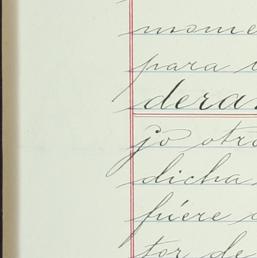 mome
para
dera.
jo otro
dicha
fuere
tor de